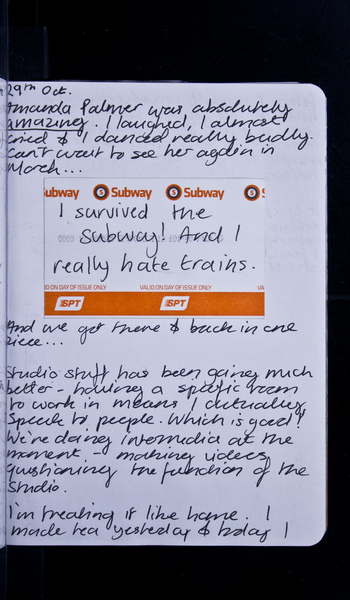 29th Oct.
Amanda Palmer was absolutely
amazing. I laughed, I almost
cried & I danced really badly.
Can't wait to see her again in
March...
ubway S Subway S Subway S
I survived the
Subway! And I
really hate trains.
ID ON DAY OF ISSUE ONLY VALID ON DAY OF ISSUE ONLY VA
SPT SPT
And we got there & back in one
piece...
Studio stuff has been going much
better - having a specific room
to work in means I actually
speak to people. Which is good!
We're doing intermedia at the
moment - making videos
questioning the function of the
Studio.
I'm treating it like home. I
made tea yesterday & today I